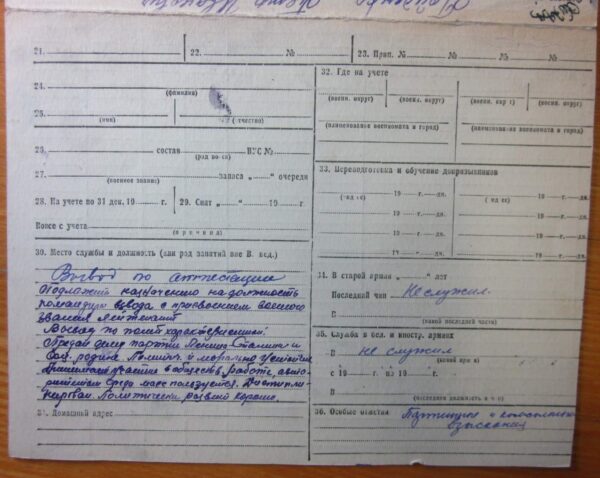 21.
22. №
23. Прип. № № № №
24.
(фамилия)
25.
(имя) (отчество)
26. состав ВУС №
(род войск)
27. запаса „ “ очереди
(военное звание)
28. На учете по 31 дек. 19 г. 29. Снят „ “ 19 г.
Вовсе с учета
(причина)
30. Место службы и должность (или род занятий вне В. вед.)
Вывод по аттестации
Подлежит назначению на должность
командира взвода с присвоением военного
звания лейтенант
Вывод по полит характеристике:
Предан делу партии Ленина Сталина и
родине. Политич. и морально устойчив
Принимает участие в обществ. работе, авто-
ритетом среди масс пользуется. Дисципли-
нирован. Политически развит хорошо.
31. Домашний адрес
32. Где на учете
(военн. округ) (военн. округ) (военн. округ) (военн. округ)
(наименование военкомата и город) (наименование военкомата и город)
33. Переподготовка и обучение допризывников
(где) 19 г. дн. (где) 19 г. дн.
19 г. дн. 19 г. дн.
19 г. дн. 19 г. дн.
19 г. дн. 19 г. дн.
34. В старой армии „ “ лет
Последний чин Не служил.
В
(какой последней части)
35. Служба в бел. и иностр. армиях
В не служил
(какой армии)
с 19 г. по 19 г.
В
(последняя должность и ч)
36. Особые отметки Партийных и комсомольск
взысканий